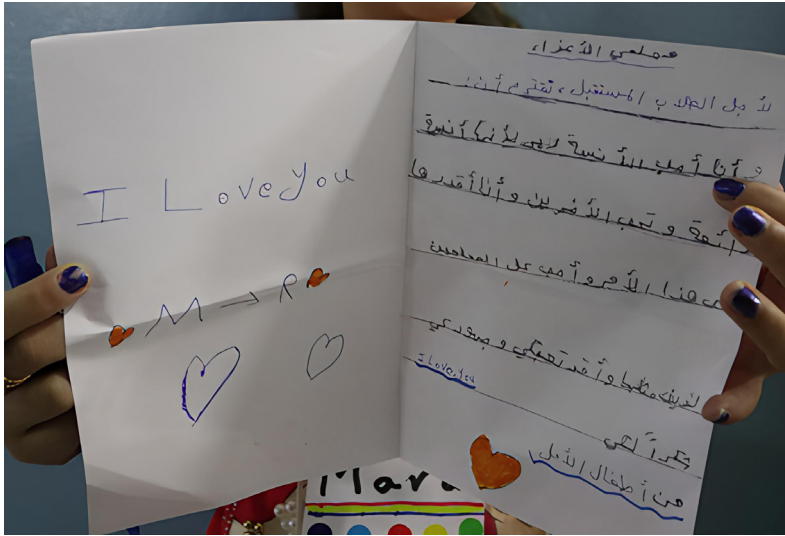 I Love You
M → R
معلمي الأعزاء
لأجل الطلاب المستقبل، نقترح أن:
و أنا أحب الأنسة لابى لأنها أنسة
رائعة و تحب الأخرين و أنا أقدرها
هذا الأمر و أحب كل المعلمين
الذين مثلها و أقدر تعبكي و جهودكي
I Love You
شكراً لكي
من أطفال الأمل
Mar